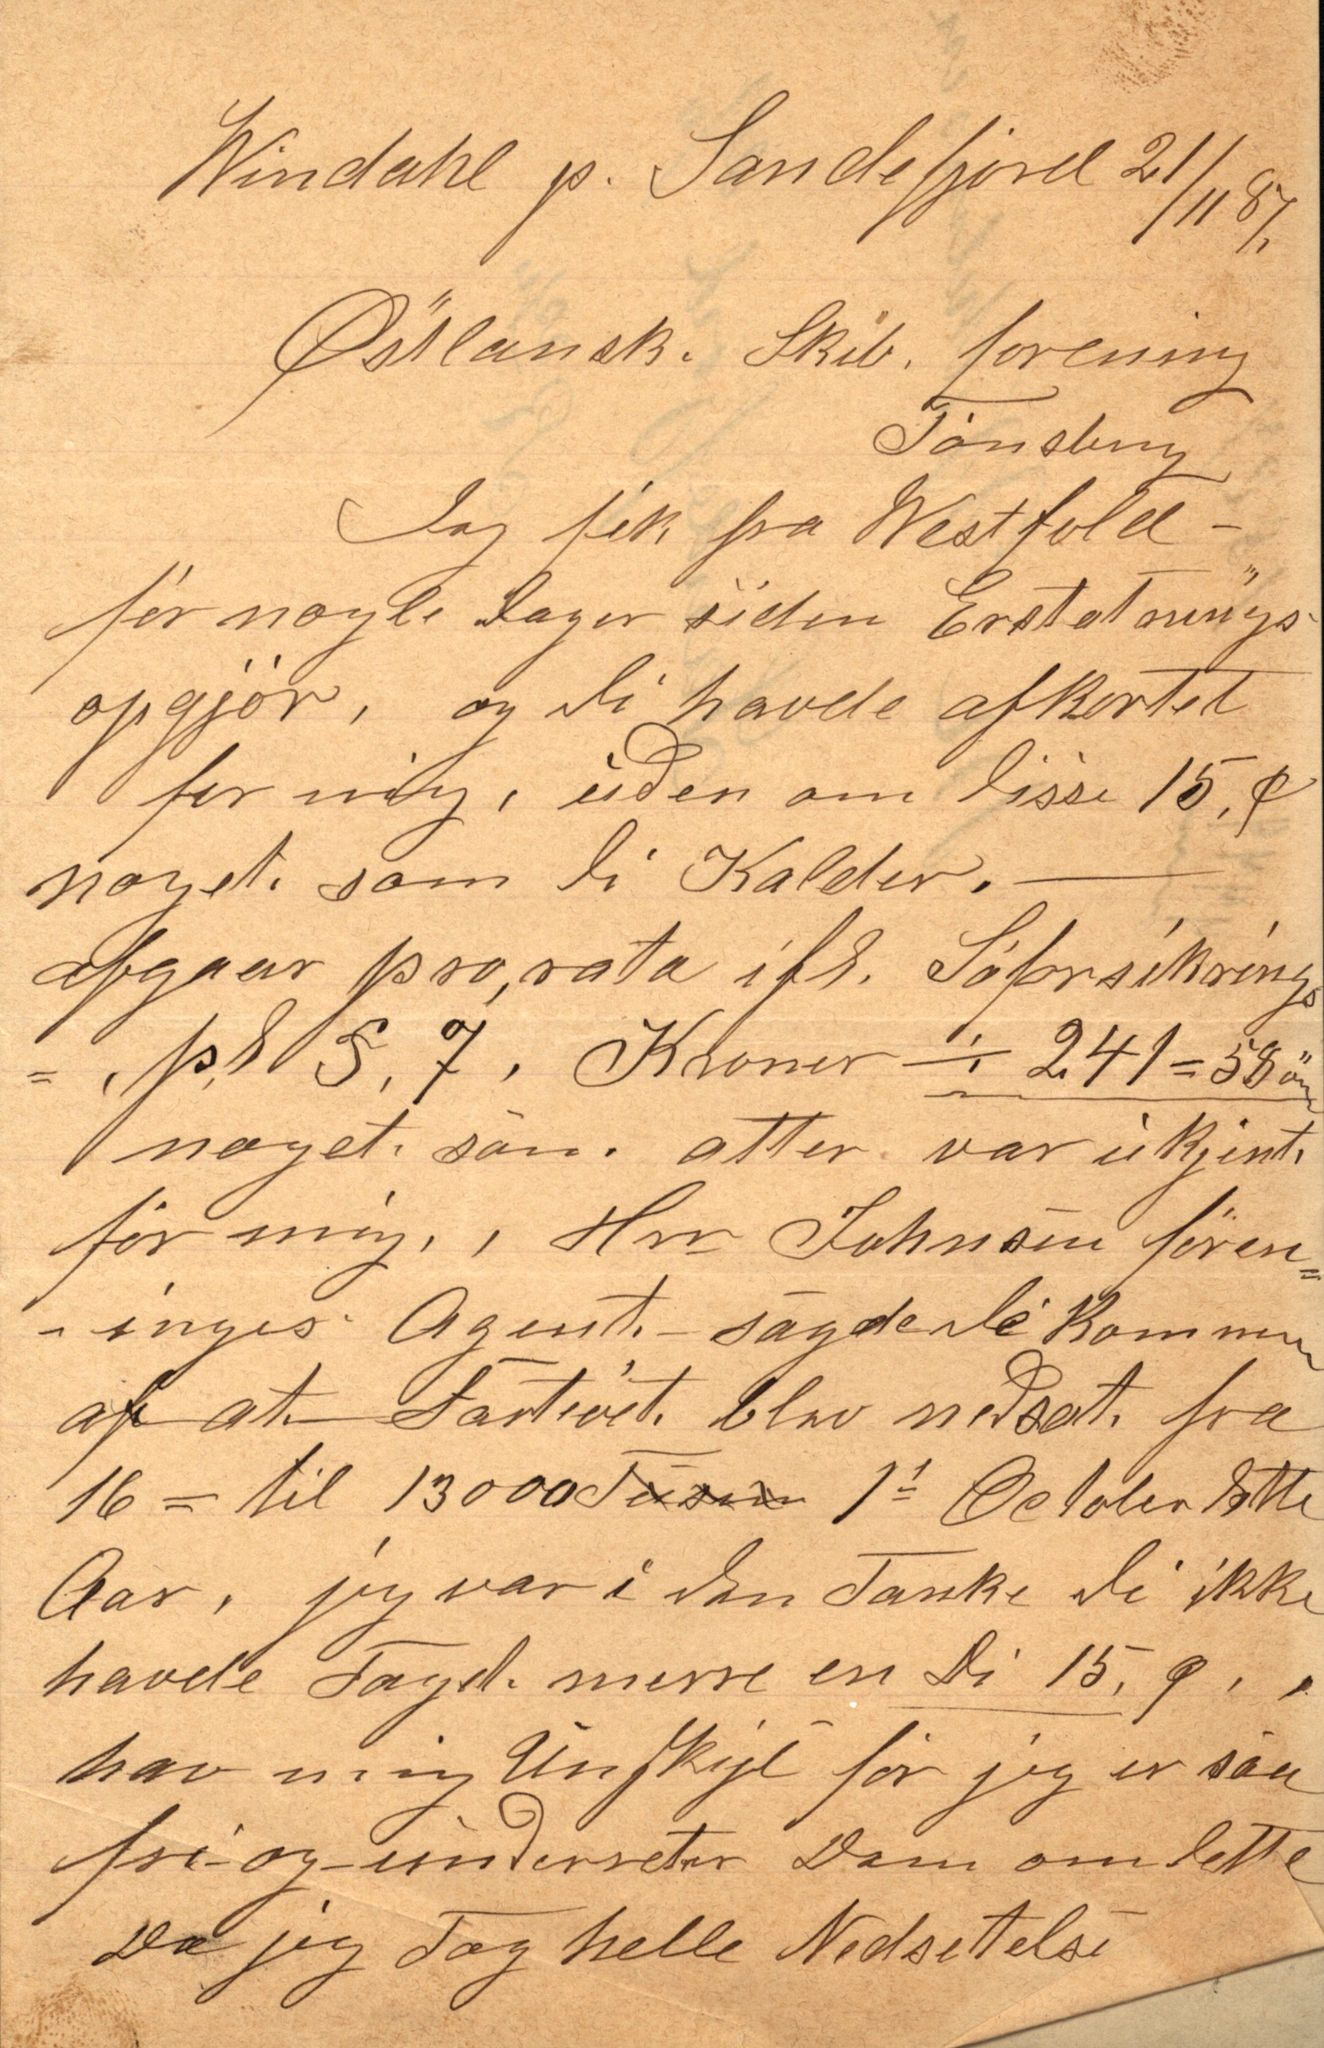 Windahl p. Sandefjord 21/11 87.
Östlansk. Skib. forening
Tönsberg
Jeg fik fra Westfold -
for nogle Dager siden Erstatnings
opgjör, og di havde afkortet
for mig, uden om disse 15, %
noget. som di Kalder. —
afgaar pro, rata ifl. Söforsikrings
= , pl §. 7, Kroner ÷ 241 = 58 öre
noget. som. atter. var ukjent.
for mig. , Hrr Johnsen foren=
- inges. Agent. - sagde de kommer
af at. Fartöiet. blev nedsat. fra
16 = til 13000 Tusin 1ste October dette
Aar, jeg var i den Tanke di ikke
havde Tagd. merre en di 15, % . ,
hav mig Unskyl for jeg er saa
fri - og - underreter Dem om dette
Da jeg Tog helle Nedsetelse